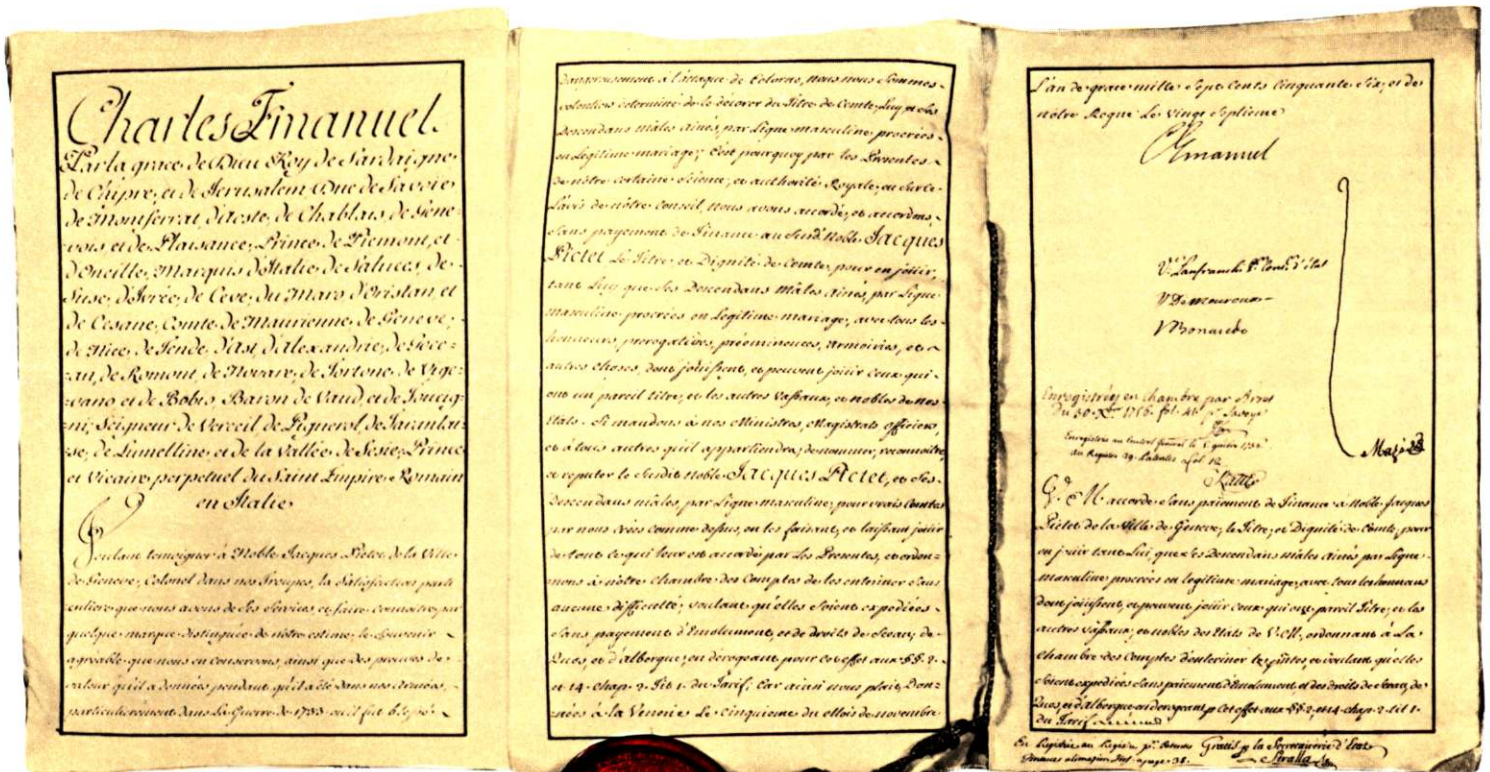 Charles Emanuel.
Par la grace de Dieu Roy de Sardaigne,
de Chipre, et de Jerusalem Duc de Savoie,
de Montferrat, d'Aoste, de Chablais, de Gene-
-vois, et de Plaisance, Prince de Piemont, et
d'Oneille, Marquis d'Italie, de Saluces, de
Suse, d'Ivrée, de Ceve, du Maro, d'Oristan, et
de Cesane, Comte de Maurienne, de Geneve,
de Nice, de Tende, d'Ast, d'Alexandrie, de Goce-
-an, de Romont, de Novare, de Tortone, de Vige-
-vano et de Bobis, Baron de Vaud, et de Foucig-
-ni, Seigneur de Verceil de Pignerol, de Tarantai-
-se, de Lumelline, et de la Vallée de Sesie, Prince
et Vicaire perpetuel du Saint Empire Romain
en Italie
Voulant temoigner à Noble Jacques Pictet de la Ville
de Geneve, Colonel dans nos Troupes, la Satisfaction parti
culiere que nous avons de Ses Services et faire connaitre, par
quelque marque distinguée de nôtre estime, le Souvenir
agréable que nous en conservons, ainsi que des preuves de
valeur qu'il a données pendant qu'il a été dans nos Armées,
particulièrement dans La Guerre de 1733 où il fut blessé
dangereusement à l'attaque de Colorno, nous nous Sommes
volontiers determiné de le décorer du Titre de Comte, Luy et Ses
Descendans mâles ainés, par Ligne masculine procréés
en Legitime mariage; C'est pourquoy par les Presentes
de nôtre certaine Science, et authorité Royale, eu Sur ce
L'avis de nôtre Conseil, nous avons accordé, et accordons,
Sans payement de Finance au Surd.t Noble Jacques
Pictet Le Titre, et Dignité de Comte, pour en joüir,
tant Luy que Ses Descendans Mâles Ainés, par Ligne
masculine procréés en Legitime mariage, avec tous les
honneurs, prerogatives, préeminences, armoiries, et
autres choses, dont joüissent, et peuvent joüir Ceux qui
ont un pareil titre, et les autres Vassaux, et nobles de nos
Etats. Si mandons à nos Ministres, Magistrats, Officiers,
et à tous autres qu'il appartiendra, de nommer, reconnaitre,
et reputer le Susdit noble Jacques Pictet, et Ses
Descendans mâles, par Ligne masculine, pour vrais Comtes
par nous créés comme dessus, en les faisant, et laissant joüir
de tout ce qui leur est accordé par Les Presentes, et ordon-
nons à nôtre Chambre des Comptes de les enteriner Sans
aucune difficulté; voulant qu'elles Soient expediées
Sans payement d'Emolument, et de droits de Sceau, de
Quos, et d'alborgue, en dérogeant pour cet effet aux §§. 2.
et 14. Chap. 2. Tit. 1. du Tarif; Car ainsi nous plait, Don-
nées à la Venerie Le Cinquieme du Mois de novembre
L'an de grace mille Sept Cents Cinquante Six, et de
nôtre Regne Le Vingt Septieme
CEmanuel
V. Lanfranchi P.r Cons.r d'état
V. De mouroux
V. Bonaudo
Enregistrées en Chambre par Arret
Du 30 X.bre 1756. fol. 41 p.r Savoye
Enregistrés au Control general le
au Registre 29. Patentes fol. 12
Mazé
V. M. accorde Sans paiement de Finance à Noble Jacques
Pictet de la Ville de Geneve, le Titre, et Dignité de Comte, pour
en joüir tant Lui, que Ses Descendans mâles ainés par Ligne
masculine procréés en legitime mariage, avec tous les honneurs
dont joüissent, et peuvent joüir ceux qui ont pareil Titre, et les
autres vassaux, et nobles des Etats de V. M., ordonnant à La
Chambre des Comptes d'enteriner les p.ntes, et voulant qu'elles
Soient expediées Sans paiement d'Emolument et des Droits de Sceau, de
Quos, et d'alborgue en derogeant p.r Cet effet aux §§. 2. et 14. chap. 2. tit. 1.
du Tarif
Gratis p.r la Secretairerie d'Etat